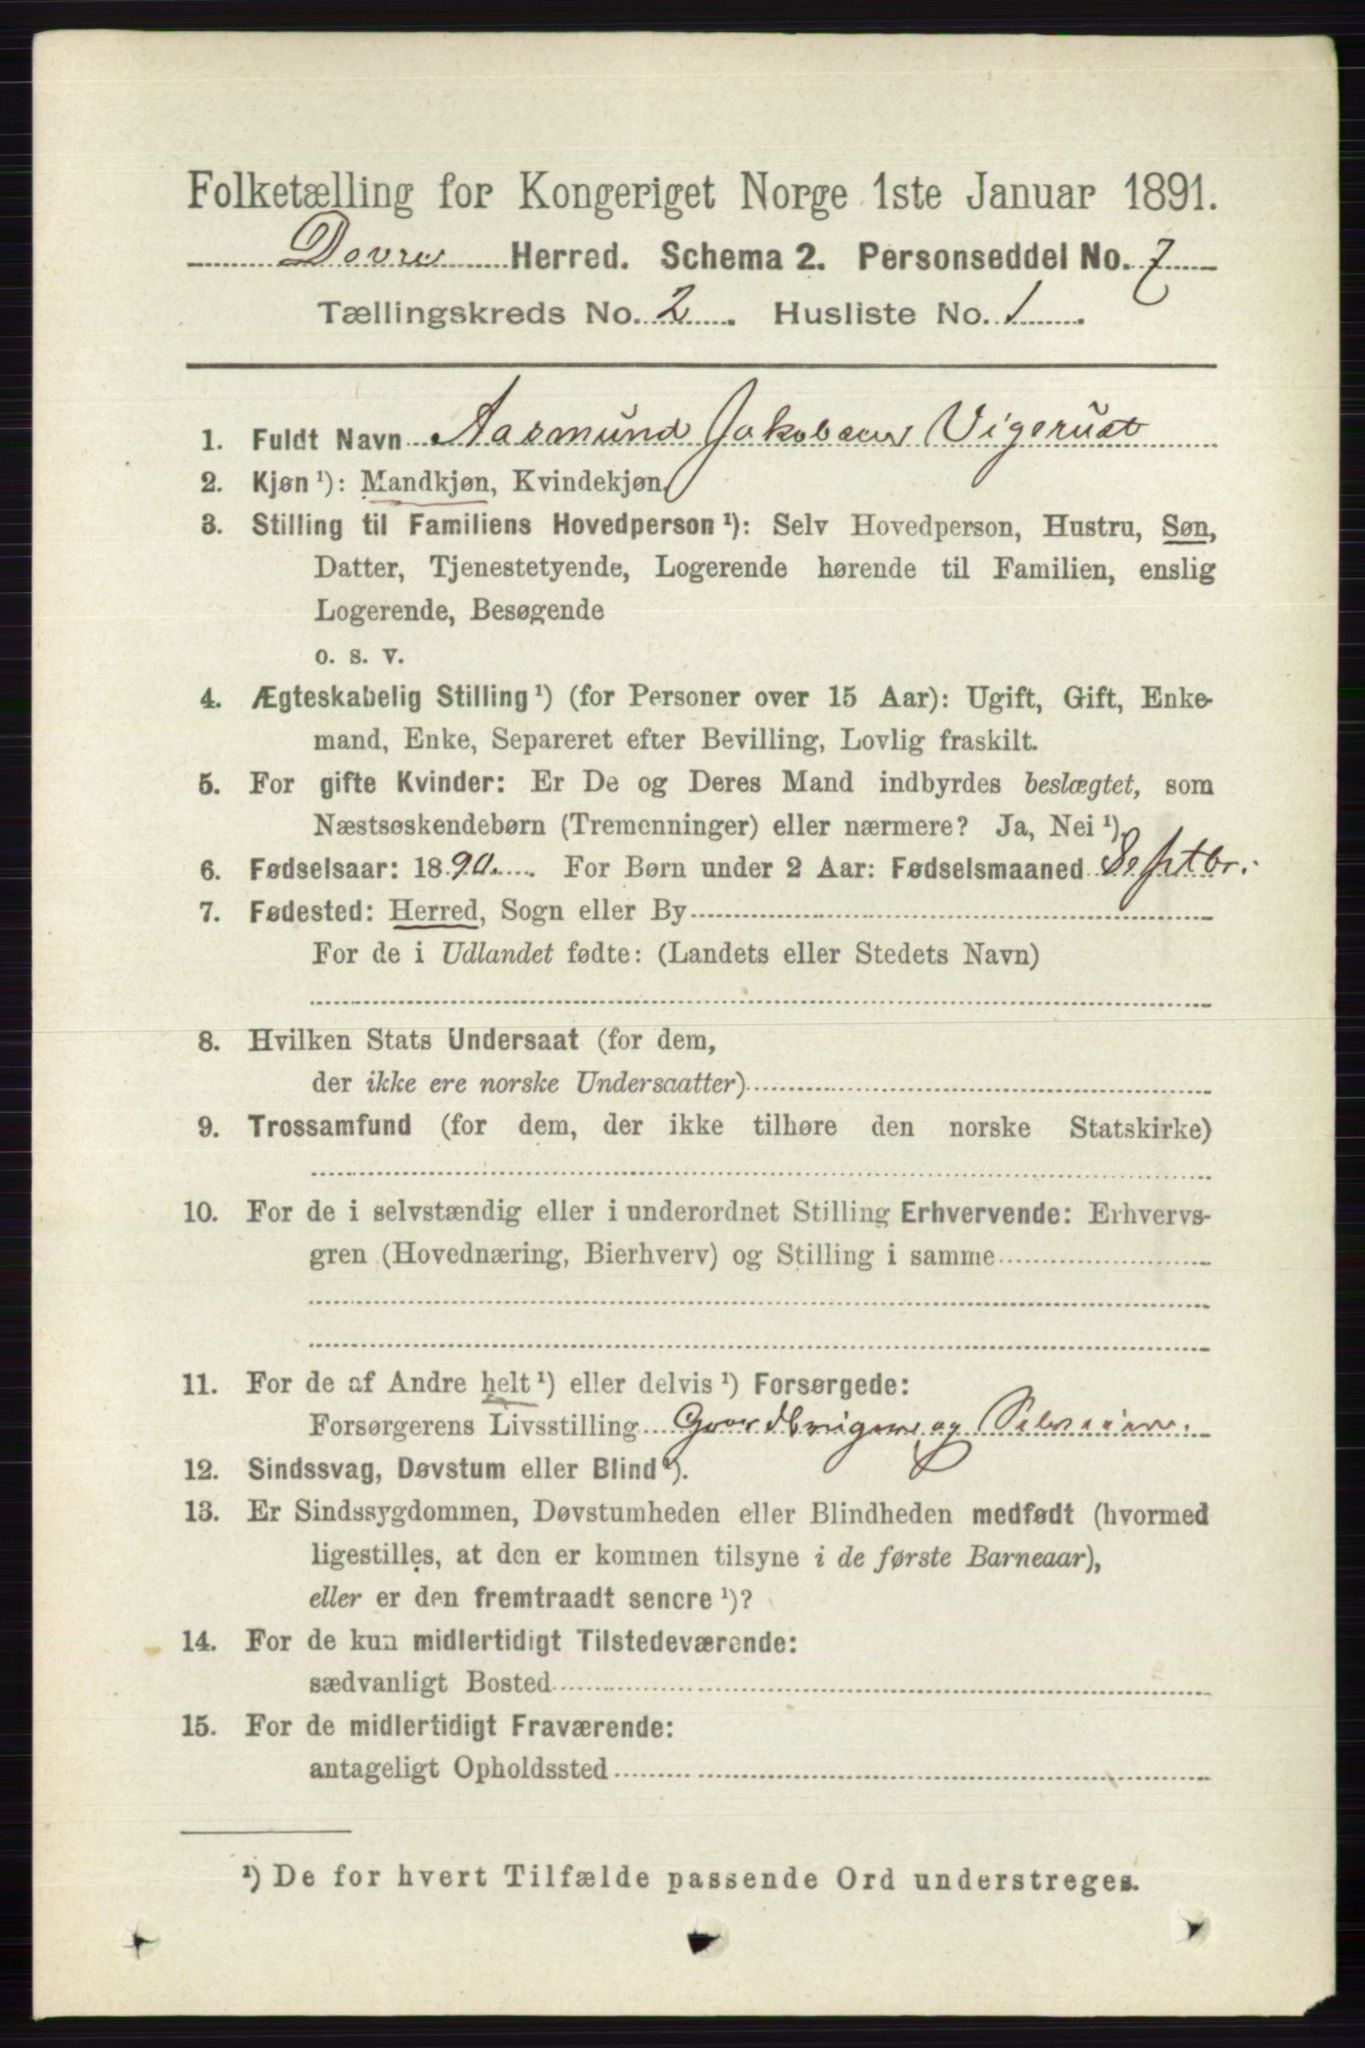 Folketælling for Kongeriget Norge 1ste Januar 1891.
Dovre Herred. Schema 2. Personseddel No. 7
Tællingskreds No. 2. Husliste No. 1.
1. Fuldt Navn Aasmund Jakobsen Vigerust
2. Kjøn ¹): Mandkjøn, Kvindekjøn
3. Stilling til Familiens Hovedperson ¹): Selv Hovedperson, Hustru, Søn,
Datter, Tjenestetyende, Logerende hørende til Familien, enslig
Logerende, Besøgende
o. s. v.
4. Ægteskabelig Stilling ¹) (for Personer over 15 Aar): Ugift, Gift, Enke-
mand, Enke, Separeret efter Bevilling, Lovlig fraskilt.
5. For gifte Kvinder: Er De og Deres Mand indbyrdes beslægtet, som
Næstsøskendebørn (Tremenninger) eller nærmere? Ja, Nei ¹).
6. Fødselsaar: 1890. For Børn under 2 Aar: Fødselsmaaned Septbr.
7. Fødested: Herred, Sogn eller By
For de i Udlandet fødte: (Landets eller Stedets Navn)
8. Hvilken Stats Undersaat (for dem,
der ikke ere norske Undersaatter)
9. Trossamfund (for dem, der ikke tilhøre den norske Statskirke)
10. For de i selvstændig eller i underordnet Stilling Erhvervende: Erhvervs-
gren (Hovednæring, Bierhverv) og Stilling i samme
11. For de af Andre helt ¹) eller delvis ¹) Forsørgede:
Forsørgerens Livsstilling Gaardbruger og Selveier.
12. Sindssvag, Døvstum eller Blind ¹).
13. Er Sindssygdommen, Døvstumheden eller Blindheden medfødt (hvormed
ligestilles, at den er kommen tilsyne i de første Barneaar),
eller er den fremtraadt senere ¹)?
14. For de kun midlertidigt Tilstedeværende:
sædvanligt Bosted
15. For de midlertidigt Fraværende:
antageligt Opholdssted
¹) De for hvert Tilfælde passende Ord understreges.